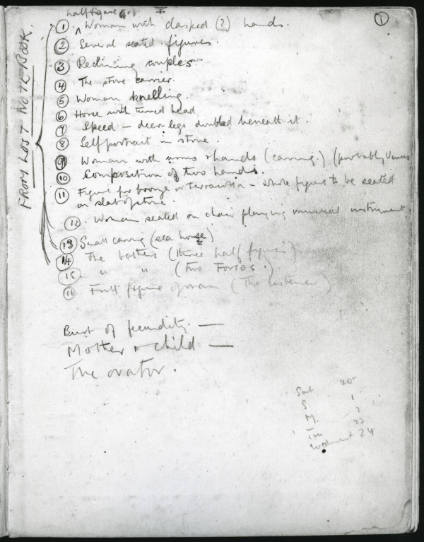 half figure
①
① Woman with clasped (?) hands.
② Several seated figures
③ Reclining couples
④ The stone carrier.
⑤ Woman kneeling.
⑥ Horse with turned head
⑦ Speed – deer legs doubled beneath it.
⑧ Self portrait in stone.
⑨ Woman with arms & hands (carving.) (probably
⑩ Composition of two hands.
⑪ Figure for bronze or terracotta – whole figure to be seated
on slab of stone.
⑫ Woman seated on chair playing musical instrument
⑬ Small carving (sea horse)
⑭ The bathers (three half figures)
⑮ " " (Two Torsos.)
⑯ Full figure of woman (The listener)
FROM LAST NOTE BOOK
Bust of fecundity —
Mother & child —
The orator.
Sat 20
S 1
M.
24